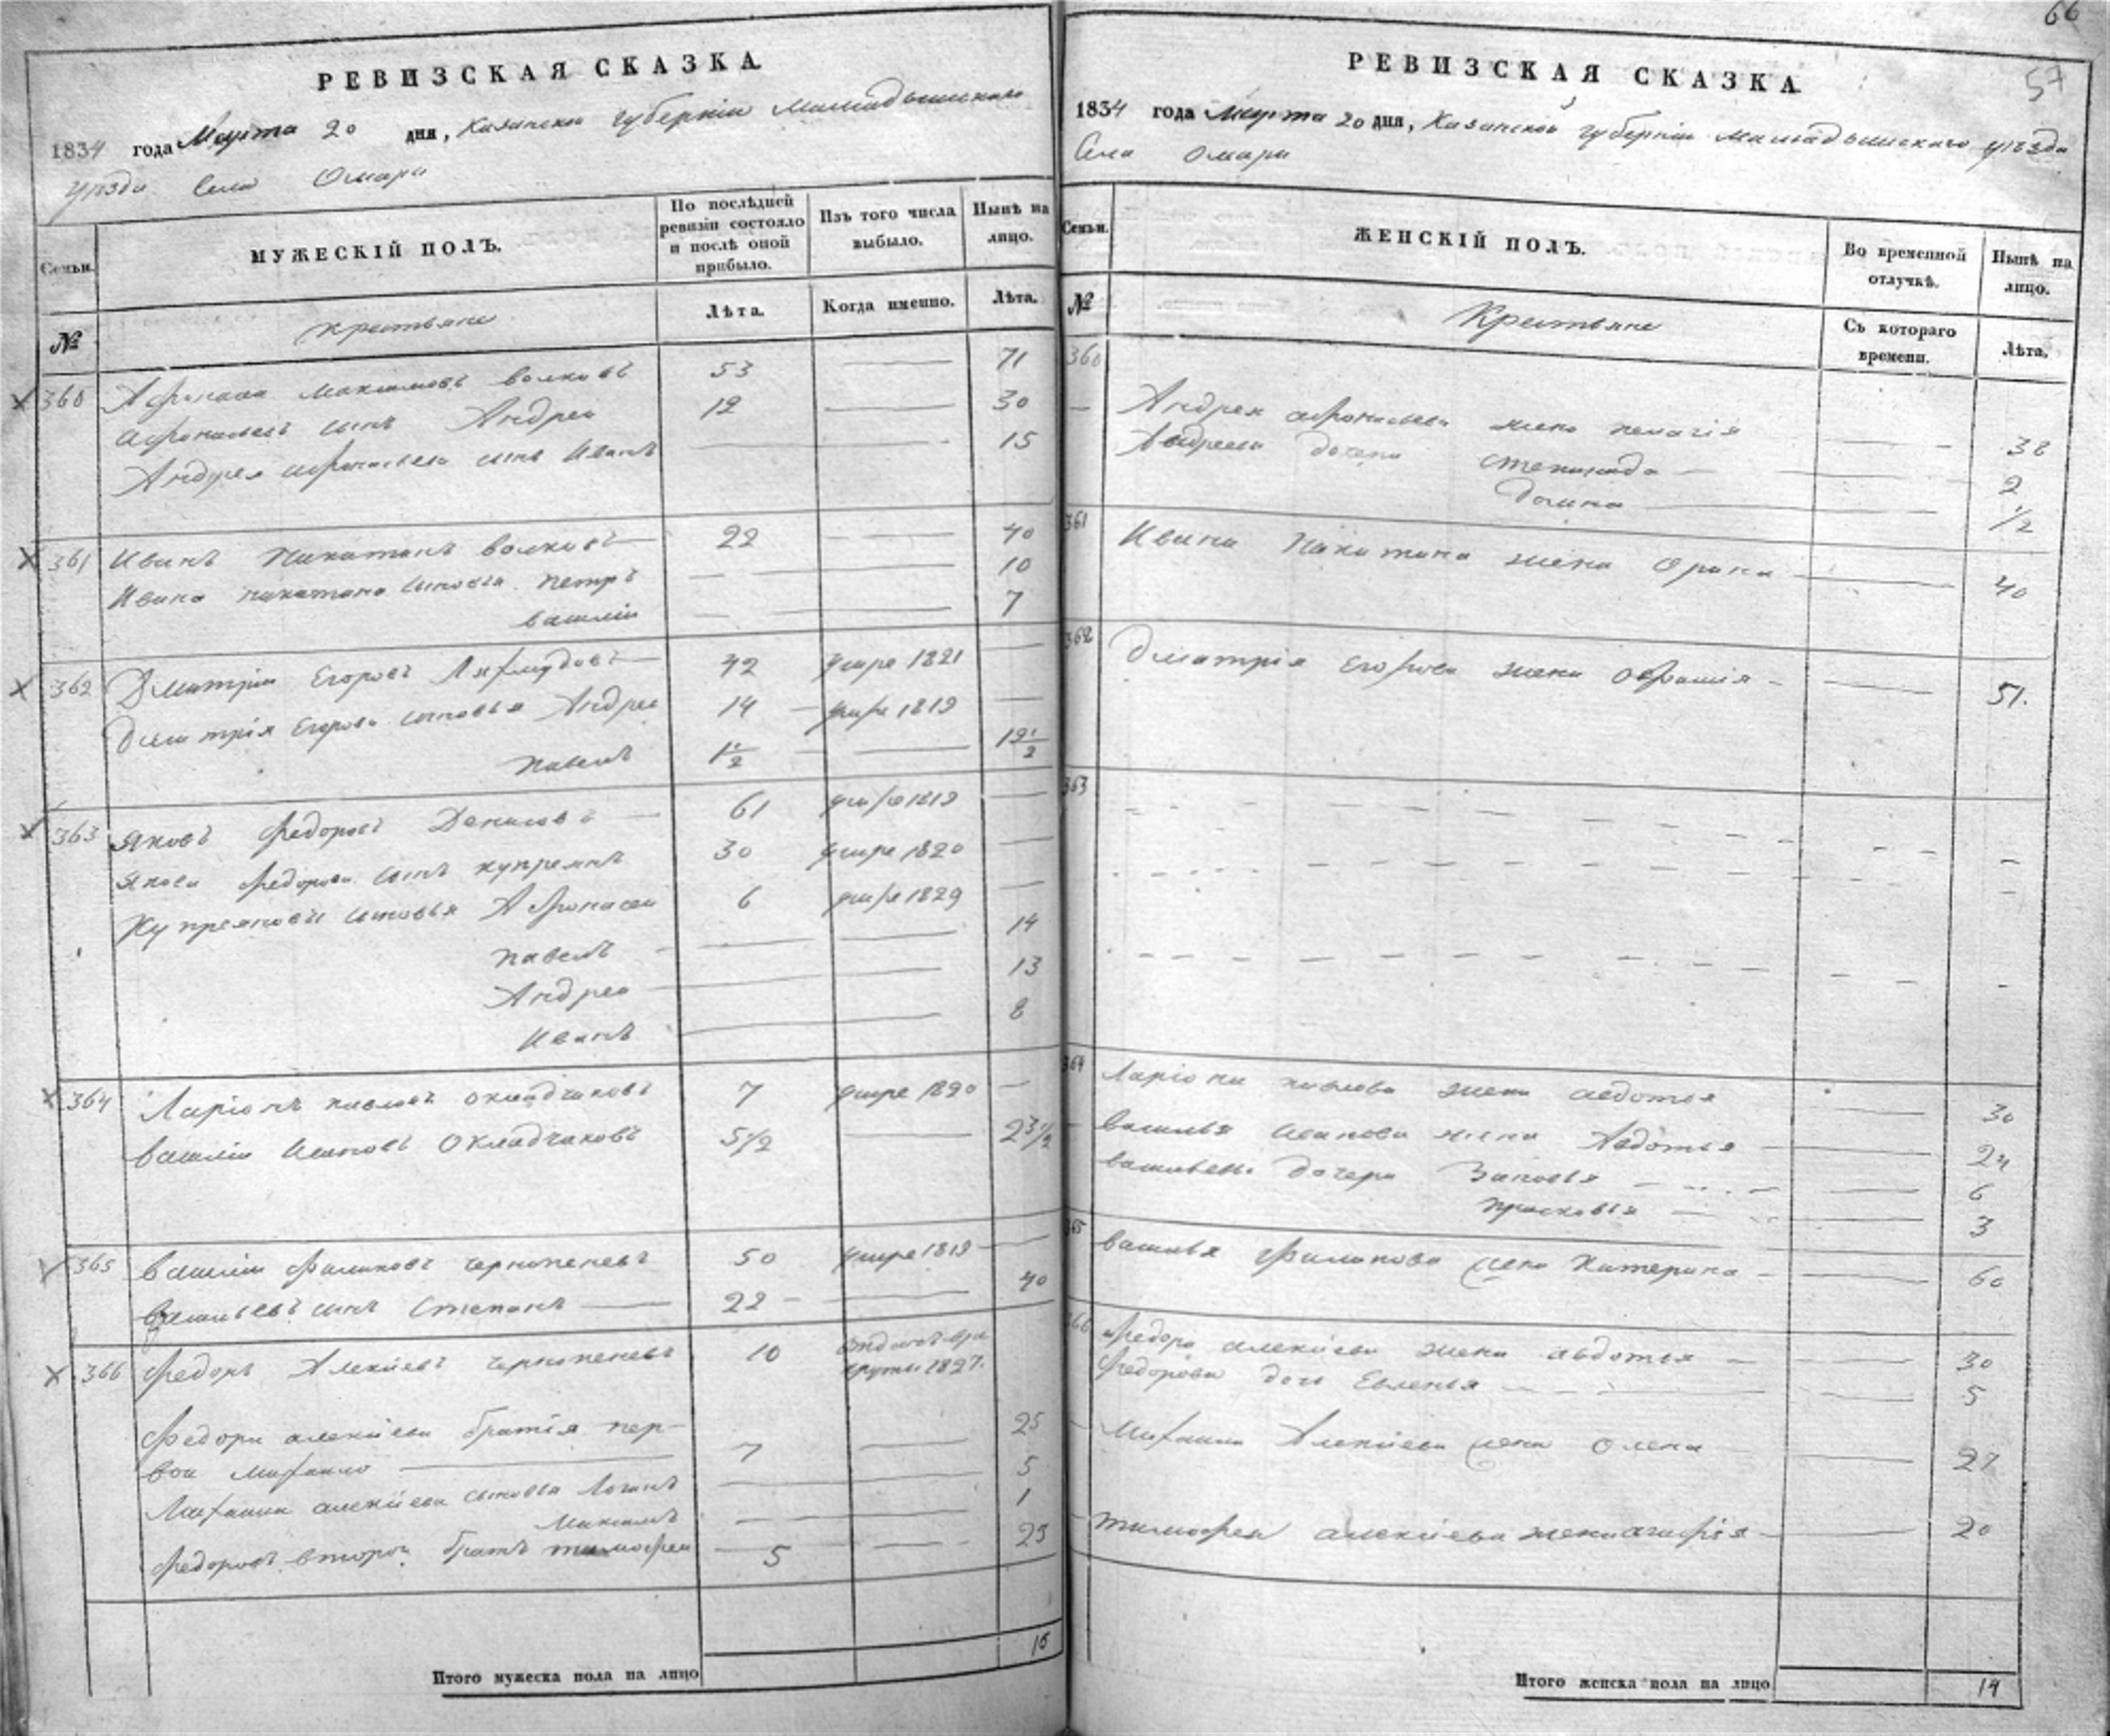 РЕВИЗСКАЯ СКАЗКА
1834 года Марта 20 дня, Казанской губернии Мамадышскаго
уѣзда Села Омари
Семьи.
МУЖЕСКІЙ ПОЛЪ.
По послѣдней ревизіи состояло и послѣ оной прибыло.
Изъ того числа выбыло.
Нынѣ на лицо.
№
крестьяне
Лѣта.
Когда именно.
Лѣта.
360 Максимовъ волковъ 53 71
сынъ Андреи 12 30
Андрея сынъ Иванъ 15
361 Иванъ Никитинъ волковъ 22 40
Ивана никитина сыновья петръ 10
василіи 7
362 Дмитріи Егоровъ 42 умре 1821
Дмитрія Егорова сыновья Андреи 14 умре 1819
павелъ 1 1/2 19 1/2
363 Яковъ Федоровъ Денисовъ 61 умре 1819
Якова Федорова сынъ купреянъ 30 умре 1820
Купреяновы сыновья Афонасеи 6 умре 1829
павелъ 14
Андреи 13
Иванъ 8
364 Ларіонъ павловъ окладчиковъ 7 умре 1820
василіи Ивановъ Окладчиковъ 5 1/2 23 1/2
365 василіи Филиповъ черепеневъ 50 умре 1819
васильевъ сынъ Степанъ 22 40
366 Федоръ Алексіевъ черепеневъ 10 отданъ в ре
круты 1827.
Федора алексіева братія пер-
вои михаило 7 25
алексіева сыновья Логинъ 5
Максимъ 1
Федоровъ второи братъ тимофеи 5 23
Итого мужеска пола на лицо 15
66
57
РЕВИЗСКАЯ СКАЗКА
1834 года Марта 20 дня, Казанской губерніи Мамадышскаго уѣзда
Села Омари
Семьи.
ЖЕНСКІЙ ПОЛЪ.
Во временной отлучкѣ.
Нынѣ на лицо.
№
Крестьяне
Съ котораго времени.
Лѣта.
360
Андрея жена пелагія 38
Андреевы дочери Степанида 2
Домна 1/2
361 Ивана Никитина жена Орина 40
362 Дмитрія Егорова жена 51.
363
364 Ларіона павлова жена авдотья 30
василья иванова жена Авдотья 24
васильевы дочери Зиновья 6
прасковья 3
365 василья Филипова жена Катерина 60
366 Федора алексіева жена авдотья 30
Федорова дочь Евленья 5
Михаила Алексіева жена Олена 27
тимофея алексіева жена агафія 20
Итого женска пола на лицо 14